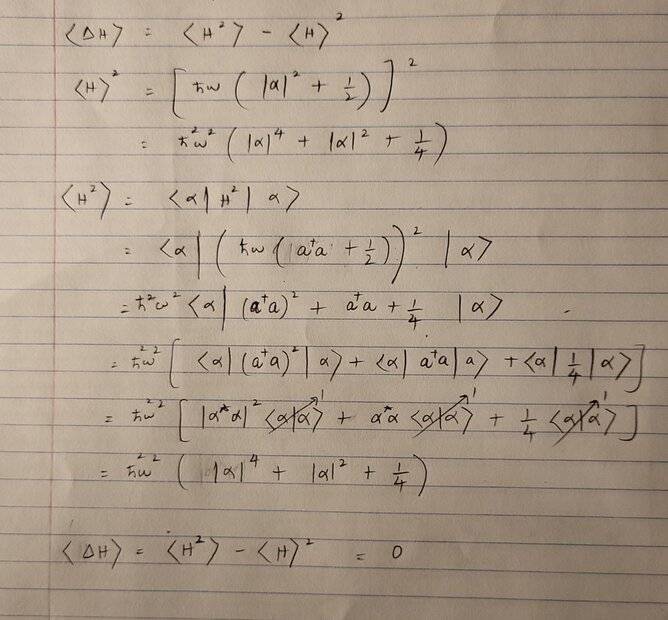 ⟨ΔH⟩ = ⟨H²⟩ - ⟨H⟩²
⟨H⟩² = [ħω (|α|² + 1/2)]²
= ħ²ω² (|α|⁴ + |α|² + 1/4)
⟨H²⟩ = ⟨α| H² | α⟩
= ⟨α| (ħω (a†a + 1/2))² | α⟩
= ħ²ω² ⟨α| (a†a)² + a†a + 1/4 | α⟩
= ħ²ω² [ ⟨α| (a†a)² | α⟩ + ⟨α| a†a | α⟩ + ⟨α| 1/4 | α⟩ ]
= ħ²ω² [ |α*α|² ⟨α|α⟩ ¹ + α*α ⟨α|α⟩ ¹ + 1/4 ⟨α|α⟩ ¹ ]
= ħ²ω² ( |α|⁴ + |α|² + 1/4 )
⟨ΔH⟩ = ⟨H²⟩ - ⟨H⟩² = 0